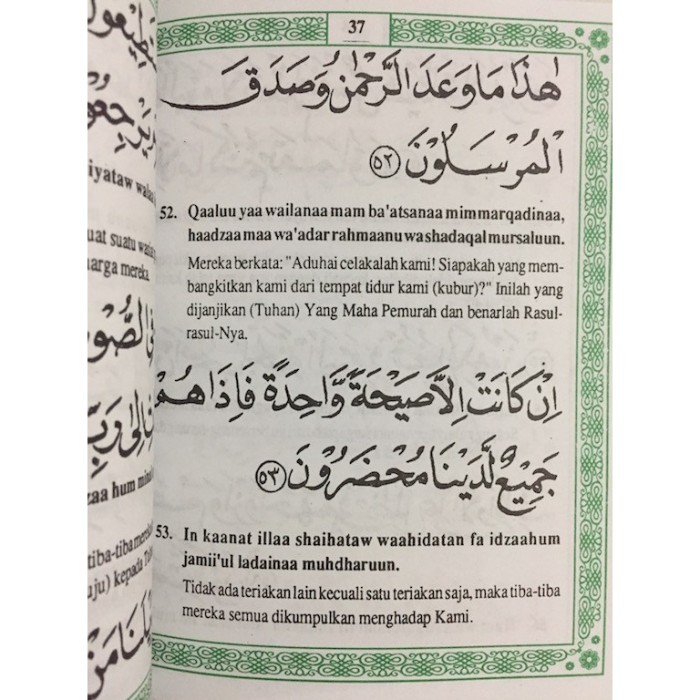 37
هٰذَا مَا وَعَدَ الرَّحْمٰنُ وَصَدَقَ
الْمُرْسَلُوْنَ ٥٢
52. Qaaluu yaa wailanaa mam ba'atsanaa mimmarqadinaa,
haadzaa maa wa'adar rahmaanu wa shadaqal mursaluun.
Mereka berkata: "Aduhai celakalah kami! Siapakah yang mem-
bangkitkan kami dari tempat tidur kami (kubur)?" Inilah yang
dijanjikan (Tuhan) Yang Maha Pemurah dan benarlah Rasul-
rasul-Nya.
اِنْ كَانَتْ اِلَّا صَيْحَةً وَّاحِدَةً فَاِذَا هُمْ
جَمِيْعٌ لَّدَيْنَا مُحْضَرُوْنَ ٥٣
53. In kaanat illaa shaihataw waahidatan fa idzaahum
jamii'ul ladainaa muhdharuun.
Tidak ada teriakan lain kecuali satu teriakan saja, maka tiba-tiba
mereka semua dikumpulkan menghadap Kami.